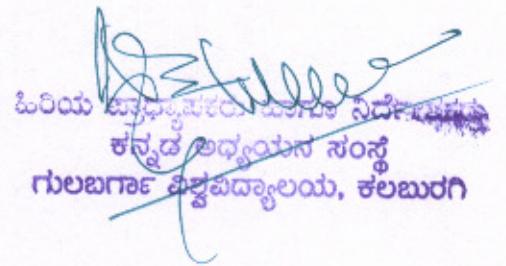 ಹಿರಿಯ ಪ್ರಾಧ್ಯಾಪಕರು ಹಾಗೂ ನಿರ್ದೇಶಕರು
ಕನ್ನಡ ಅಧ್ಯಯನ ಸಂಸ್ಥೆ
ಗುಲಬರ್ಗಾ ವಿಶ್ವವಿದ್ಯಾಲಯ, ಕಲಬುರಗಿ